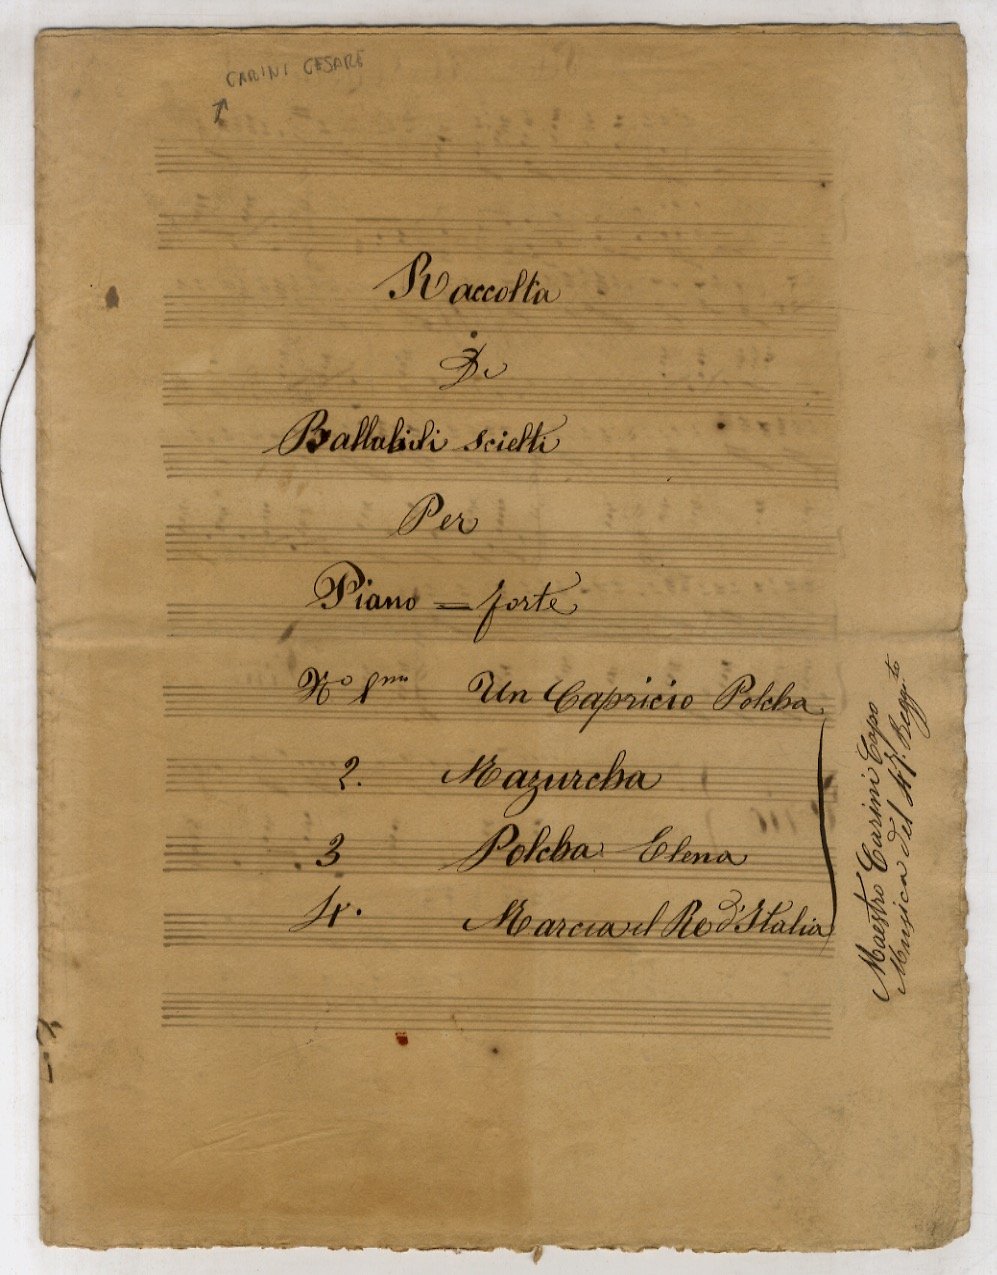 CARINI CESARE
Raccolta
Di
Ballabili scielti
Per
Piano = forte
Nº 1mo Un Capricio Polcha
2. Mazurcha
3 Polcha Elena
4. Marcia il Re d'Italia
Maestro Carini Capo
Musica del 4º Reggto